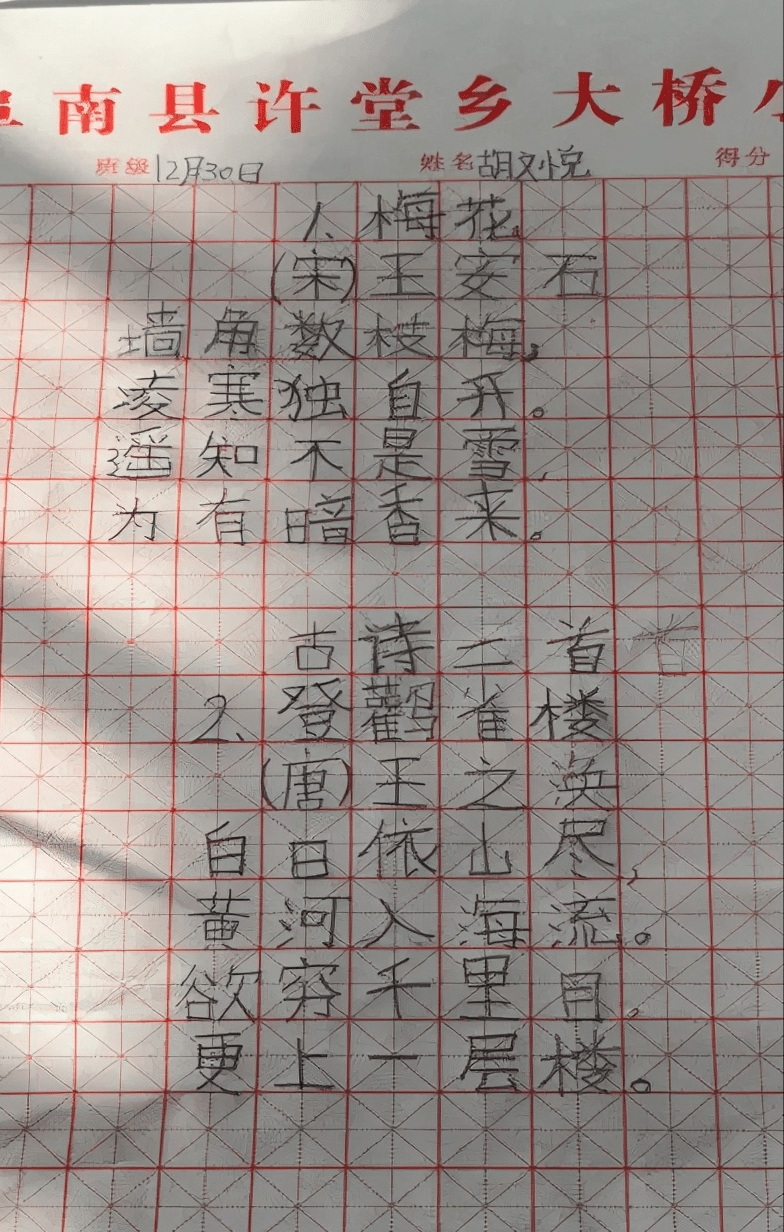 南县许堂乡大桥小
班级 12月30日 姓名 胡又悦 得分
1、梅花
(宋)王安石
墙角数枝梅，
凌寒独自开。
遥知不是雪，
为有暗香来。
古诗二首 首
2、登鹳雀楼
(唐)王之涣
白日依山尽，
黄河入海流。
欲穷千里目，
更上一层楼。